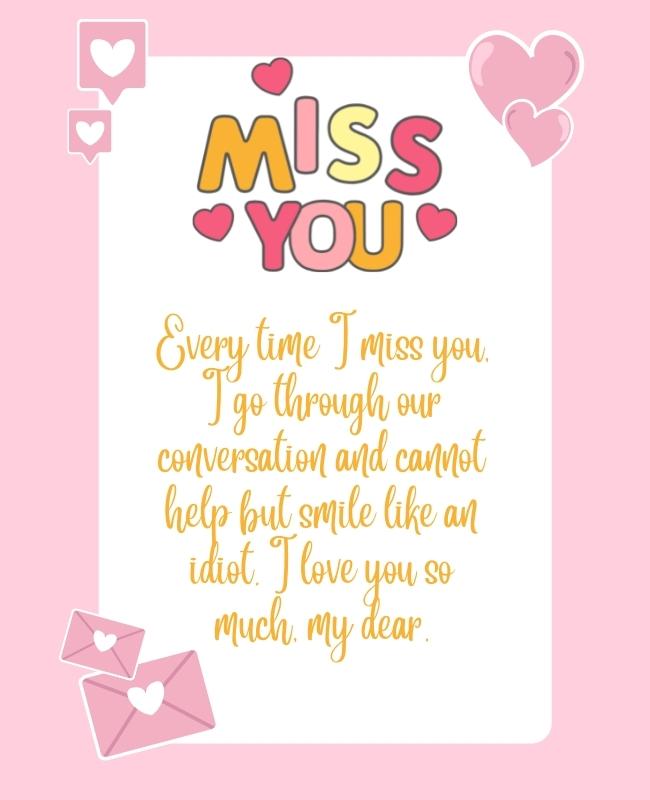 MISS
YOU
Every time I miss you,
I go through our
conversation and cannot
help but smile like an
idiot. I love you so
much, my dear.